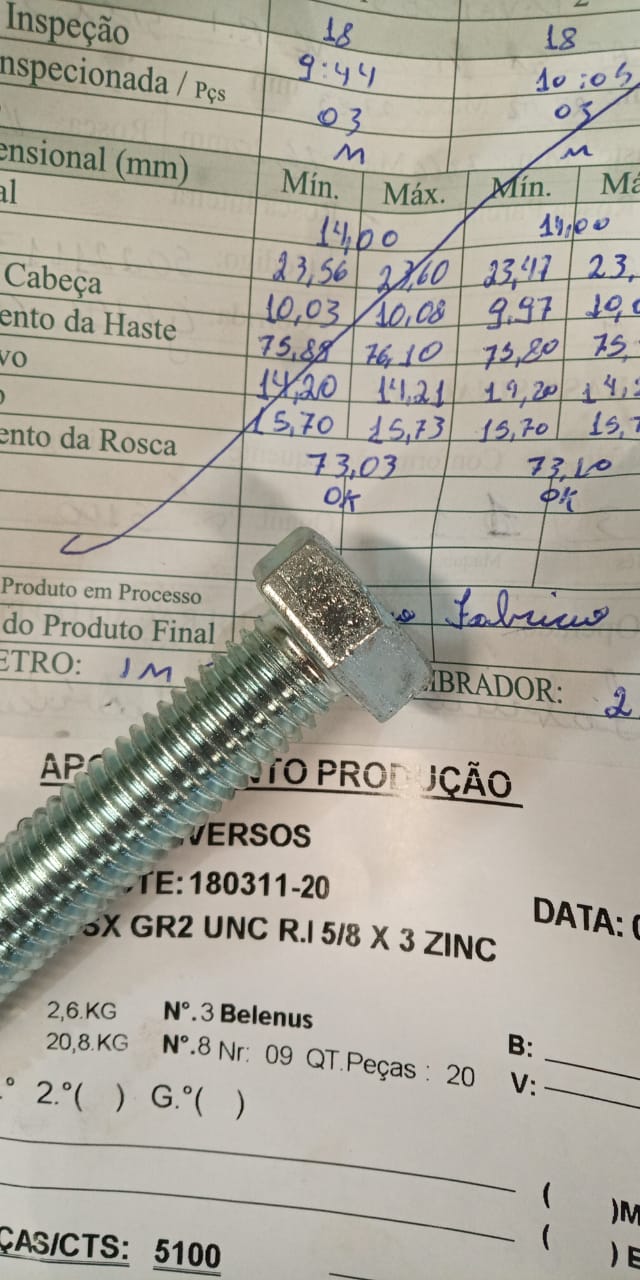 Inspeção 18 18
nspecionada / Pçs 9:44 10:05
03 03
M M
ensional (mm) Mín. Máx. Mín. Má
al 14,00 14,00
Cabeça 23,56 23,60 23,47 23,
ento da Haste 10,03 10,08 9,97 10,0
vo 75,88 76,10 75,80 75,
o 14,20 14,21 14,20 14,2
ento da Rosca 15,70 15,73 15,70 15,7
73,03 73,10
OK OK
Produto em Processo
do Produto Final Fabricio
ETRO: 1M IBRADOR: 2
AP NTO PRODUÇÃO
VERSOS
TE: 180311-20
DATA: 0
SX GR2 UNC R.I 5/8 X 3 ZINC
2,6.KG Nº.3 Belenus
20,8.KG Nº.8 Nr: 09 QT.Peças : 20
B:
V:
.º 2.º( ) G.º( )
( )M
( ) E
ÇAS/CTS: 5100